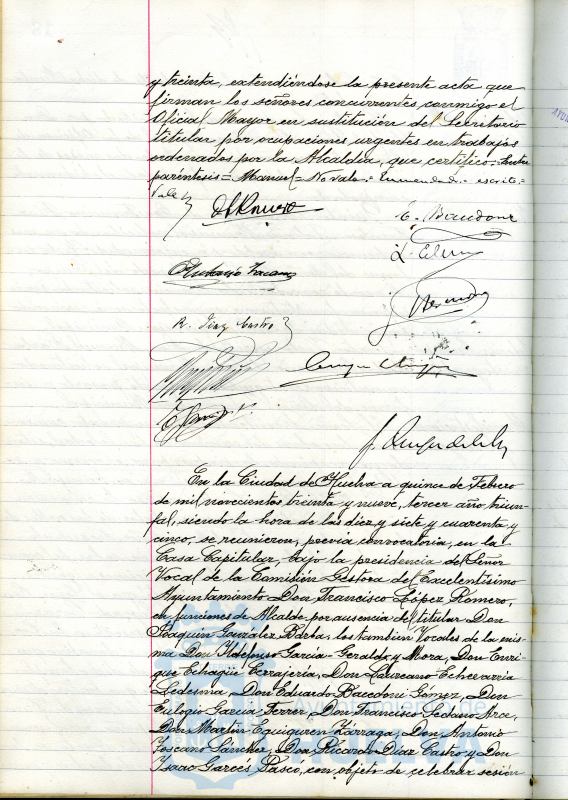 y treinta, extendiéndose la presente acta que
firman los señores concurrentes conmigo el
Oficial Mayor en sustitución del Secretario
titular por ocupaciones urgentes en trabajos
ordenados por la Alcaldía, que certifico.= Entre
paréntesis = Manuel = No vale.= Enmendado = escrito =
Vale
R. Díaz Castro
En la Ciudad de Huelva a quince de Febrero
de mil novecientos treinta y nueve, tercer año triun-
fal, siendo la hora de las diez y siete y cuarenta y
cinco, se reunieron, previa convocatoria, en la
Casa Capitular, bajo la presidencia del Señor
Vocal de la Comisión Gestora del Excelentísimo
Ayuntamiento Don Francisco López Romero,
en funciones de Alcalde por ausencia del titular Don
Joaquín González Barba, los también Vocales de la mis-
ma Don Ildefonso García-Geraldy y Mora, Don Enri-
que Echagüe Cerrajería, Don Laureano Echevarría
Ledesma, Don Eduardo Baccdoni Gómez, Don
Eulogio García Ferrer, Don Francisco Sedano Arce,
Don Martín Eguiguren Zárraga, Don Antonio
Toscano Sánchez, Don Ricardo Díaz Castro y Don
Isaac Garcés Pascó, con objeto de celebrar sesión